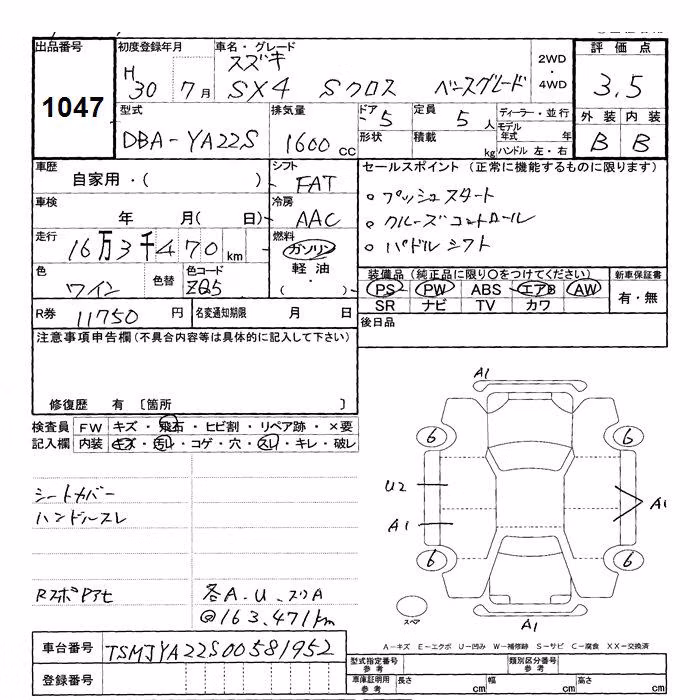 出品番号 初度登録年月 車名・グレード 2WD・4WD 評価点
1047 H30 7月 スズキ SX4 Sクロス ベースグレード 3.5
型式 排気量 ドア 定員 ディーラー・並行 外装 内装
DBA-YA22S 1600cc 5 5人 モデル年式 年 B B
形状 積載 kg ハンドル 左・右
車歴 シフト セールスポイント (正常に機能するものに限ります)
自家用・( ) FAT 。プッシュスタート
車検 冷房 。クルーズコントロール
年 月( 日) AAC 。パドルシフト
走行 燃料
16万3千470km ガソリン
色 色替 色コード 軽油 装備品 (純正品に限り○をつけてください) 新車保証書
ワイン ZQ5 ・( ) PS PW ABS エアB AW 有・無
SR ナビ TV カワ
R券 11750円 名変通知期限 月 日 後日品
注意事項申告欄 (不具合内容等は具体的に記入して下さい)
修復歴 有 〔箇所 〕
検査員 FW キズ・飛石・ヒビ割・リペア跡・×要
記入欄 内装 キズ・汚レ・コゲ・穴・スレ・キレ・破レ
シートカバー
ハンドルスレ
RスポPアセ 各A.U.スリA
@163,471km
A1
6 6
U2
A1 A1
6 6
スペア A1
A-キズ E-エクボ U-凹み W-補修跡 S-サビ C-腐食 XX-交換済
車台番号 TSMJYA22S00581952
登録番号
型式指定番号 参考 類別区分番号 参考
車庫証明用 参考 長さ cm 幅 cm 高さ cm